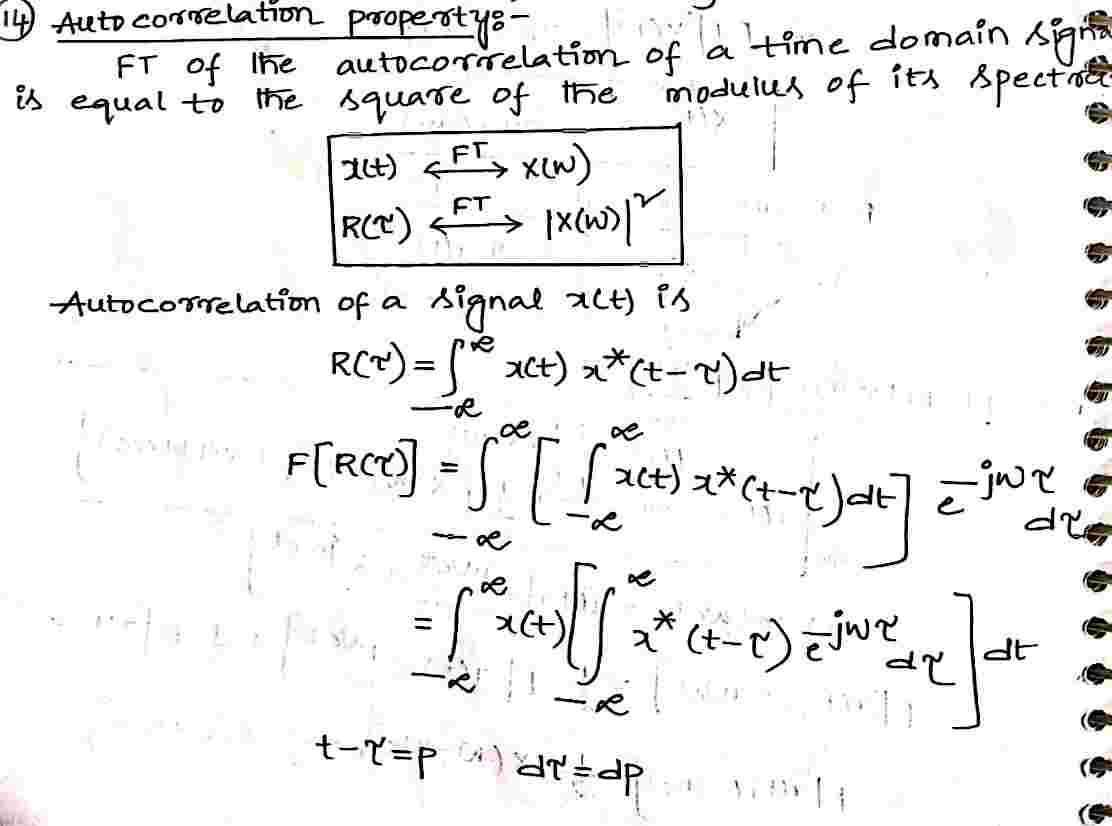 (14) Autocorrelation property:-
FT of the autocorrelation of a time domain signa
is equal to the square of the modulus of its spectra
x(t) ←FT→ X(W)
R(τ) ←FT→ |X(W)|²
Autocorrelation of a signal x(t) is
R(τ) = ∫_{-∞}^{∞} x(t) x*(t-τ) dt
F[R(τ)] = ∫_{-∞}^{∞} [ ∫_{-∞}^{∞} x(t) x*(t-τ) dt ] e^{-jwτ} dτ
= ∫_{-∞}^{∞} x(t) [ ∫_{-∞}^{∞} x*(t-τ) e^{-jwτ} dτ ] dt
t-τ=p dτ=dp